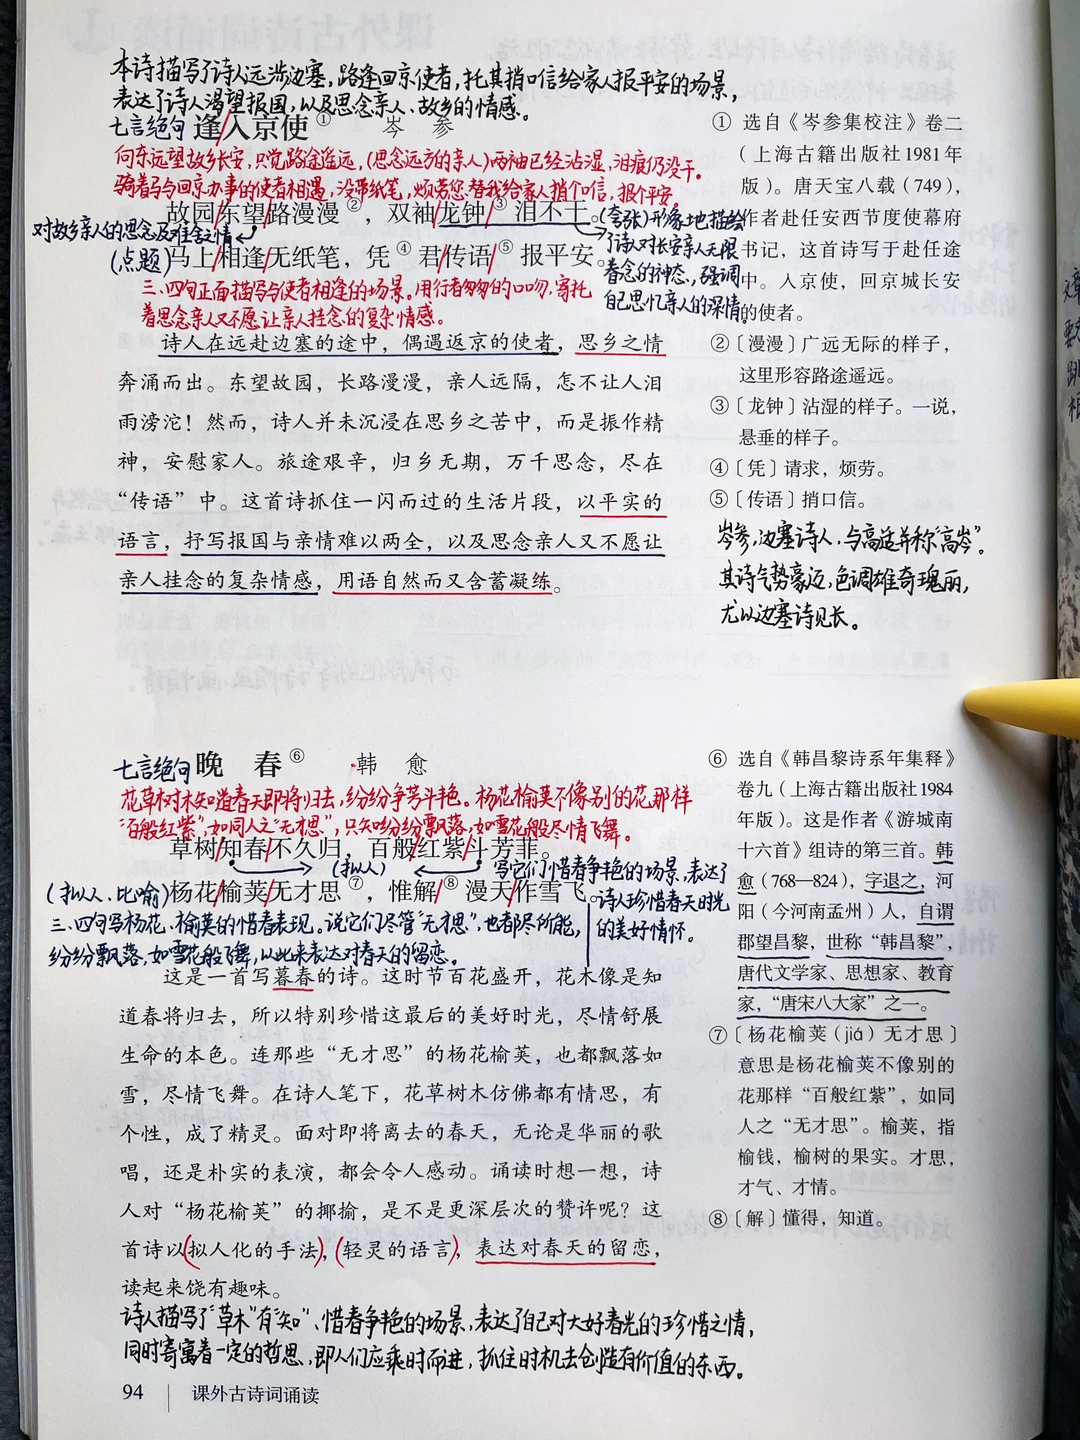 本诗描写了诗人远涉边塞,路逢回京使者,托其捎口信给家人报平安的场景,
表达了诗人渴望报国,以及思念亲人、故乡的情感。
七言绝句 逢/入京使① 岑 参
向东远望故乡长安,只觉路途遥远,(思念远方的亲人)两袖已经沾湿,泪痕仍没干。
骑着马与回京办事的使者相遇,没带纸笔,烦劳您替我给家人捎个口信,报个平安。
故园/东望/路漫漫②,双袖/龙钟/③泪不干。
对故乡亲人的思念及难舍之情
(夸张)形象地描绘
了诗人对长安亲人无限
眷念的神态,强调
自己思忆亲人的深情。
(点题)马上/相逢/无纸笔,凭④君/传语/⑤报平安。
三、四句正面描写与使者相逢的场景。用行者匆匆的口吻,寄托
着思念亲人又不愿让亲人挂念的复杂情感。
诗人在远赴边塞的途中,偶遇返京的使者,思乡之情
奔涌而出。东望故园,长路漫漫,亲人远隔,怎不让人泪
雨滂沱!然而,诗人并未沉浸在思乡之苦中,而是振作精
神,安慰家人。旅途艰辛,归乡无期,万千思念,尽在
“传语”中。这首诗抓住一闪而过的生活片段,以平实的
语言,抒写报国与亲情难以两全,以及思念亲人又不愿让
亲人挂念的复杂情感,用语自然而又含蓄凝练。
① 选自《岑参集校注》卷二
(上海古籍出版社1981年
版)。唐天宝八载(749),
作者赴任安西节度使幕府
书记,这首诗写于赴任途
中。入京使,回京城长安
的使者。
②〔漫漫〕广远无际的样子,
这里形容路途遥远。
③〔龙钟〕沾湿的样子。一说,
悬垂的样子。
④〔凭〕请求,烦劳。
⑤〔传语〕捎口信。
岑参,边塞诗人,与高适并称“高岑”。
其诗气势豪迈,色调雄奇瑰丽,
尤以边塞诗见长。
七言绝句 晚 春⑥ 韩 愈
花草树木知道春天即将归去,纷纷争芳斗艳。杨花榆荚不像别的花那样
“百般红紫”,如同人之“无才思”,只知纷纷飘落,如雪花般尽情飞舞。
草树/知春/不久归,百般/红紫/斗芳菲。
(拟人)
写它们惜春争艳的场景,表达了
诗人珍惜春天时光
的美好情怀。
(拟人、比喻)杨花/榆荚/无才思⑦,惟解/⑧漫天/作雪飞。
三、四句写杨花、榆荚的惜春表现。说它们尽管“无才思”,也都尽所能,
纷纷飘落,如雪花般飞舞,以此来表达对春天的留恋。
这是一首写暮春的诗。这时节百花盛开,花木像是知
道春将归去,所以特别珍惜这最后的美好时光,尽情舒展
生命的本色。连那些“无才思”的杨花榆荚,也都飘落如
雪,尽情飞舞。在诗人笔下,花草树木仿佛都有情思,有
个性,成了精灵。面对即将离去的春天,无论是华丽的歌
唱,还是朴实的表演,都会令人感动。诵读时想一想,诗
人对“杨花榆荚”的揶揄,是不是更深层次的赞许呢?这
首诗以(拟人化的手法),(轻灵的语言),表达对春天的留恋,
读起来饶有趣味。
诗人描写了“草木”有“知”、惜春争艳的场景,表达了自己对大好春光的珍惜之情,
同时寄寓着一定的哲思,即人们应乘时而进,抓住时机去创造有价值的东西。
⑥ 选自《韩昌黎诗系年集释》
卷九(上海古籍出版社1984
年版)。这是作者《游城南
十六首》组诗的第三首。韩
愈(768—824),字退之,河
阳(今河南孟州)人,自谓
郡望昌黎,世称“韩昌黎”,
唐代文学家、思想家、教育
家,“唐宋八大家”之一。
⑦〔杨花榆荚(jiá)无才思〕
意思是杨花榆荚不像别的
花那样“百般红紫”,如同
人之“无才思”。榆荚,指
榆钱,榆树的果实。才思,
才气、才情。
⑧〔解〕懂得,知道。
94 课外古诗词诵读